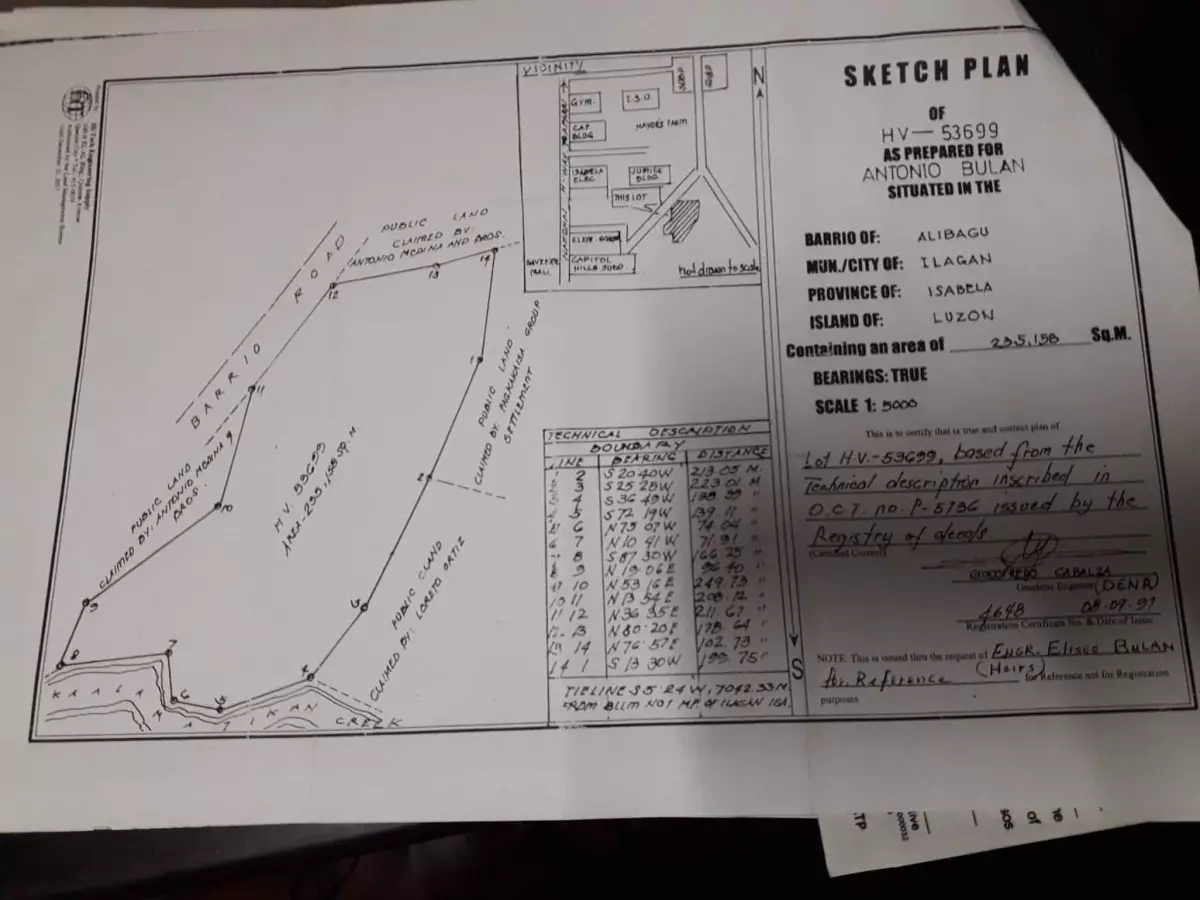 SKETCH PLAN
OF
HV-53699
AS PREPARED FOR
ANTONIO BULAN
SITUATED IN THE
BARRIO OF: ALIBAGU
MUN./CITY OF: ILAGAN
PROVINCE OF: ISABELA
ISLAND OF: LUZON
Containing an area of 235,158 Sq.M.
BEARINGS: TRUE
SCALE 1: 5000
This is to certify that is true and correct plan of
Lot H.V.-53699, based from the
Technical description inscribed in
O.C.T. no. P-5796 issued by the
Registry of deeds
(Certified Correct)
GODOFREDO CABALZA
Geodetic Engineer (DENR)
4698 08-07-97
Registration Certificate No. & Date of Issue
NOTE: This is issued thru the request of ENGR. ELISEO BULAN
(Heirs)
for Reference for Reference not for Registration
purposes.
VICINITY
GYM.
T.S.D
CAP. BLDG
MAYOR'S FARM
ISABELA ELEC
JUSTICE BLDG
THIS LOT
ELEM. SCHOOL
CAPITOL
HILLS SUBD.
MALL
not drawn to scale
N
S
BARRIO ROAD
PUBLIC LAND
CLAIMED BY:
ANTONIO MEDINA AND BROS.
12
13
14
11
1
PUBLIC LAND
CLAIMED BY: PAGKAKAISA GROUP
SETTLEMENT
PUBLIC LAND
CLAIMED BY: ANTONIO MEDINA &
BROS.
H.V. 53699
AREA-235,158 SQ.M.
2
10
PUBLIC LAND
CLAIMED BY: LORETO ORTIZ
9
8
7
6
5
4
CREEK
TECHNICAL DESCRIPTION
BOUNDARY
LINE BEARING DISTANCE
2 S 20 40 W 213.05 M.
3 S 25 28 W 223.01 M
4 S 36 49 W
5 S 72 19 W 139.11 "
6 N 75 07 W 74.04 "
7 N 10 41 W 71.91 "
8 S 87 30 W 166.25 "
9 N 19 06 E 96.40 "
10 N 53 16 E 249.73 "
11 N 13 54 E 208.12 "
11 12 N 36 35 E 211.67 "
13 N 80 20 E 178.64 "
14 N 76 57 E 102.73 "
14 1 S 13 30 W 199.75 "
TIELINE S 5 24 W, 7042.33 M.
FROM BLLM NO 1 MP. OF ILAGAN ISA.